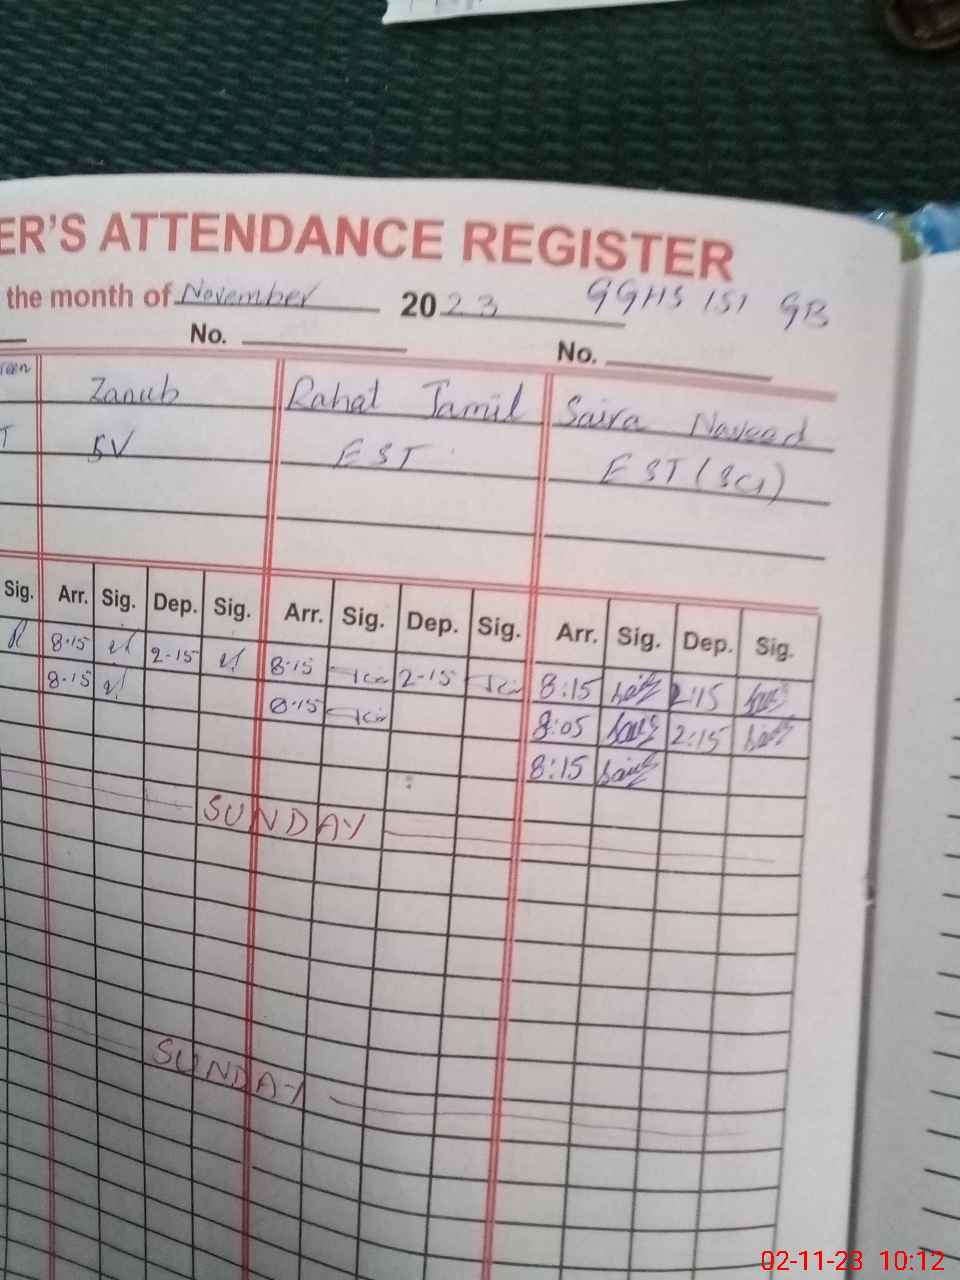 ER'S ATTENDANCE REGISTER
the month of November 2023 GGHS 151 GB
No. No.
Zanub Rahat Jamil Saira Naveed
T SV EST EST (Sci)
Sig. Arr. Sig. Dep. Sig. Arr. Sig. Dep. Sig. Arr. Sig. Dep. Sig.
8-15 2-15 8-15 2-15 8:15 2:15
8-15 8-15 8:05 2:15
8:15
SUNDAY
SUNDAY
02-11-23 10:12